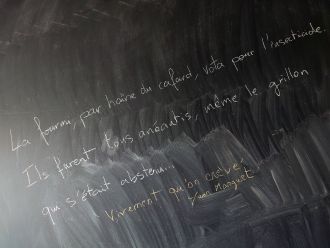 La fourmi, par haine du cafard, vota pour l'insecticide.
Ils furent tous anéantis, même le grillon
qui s'était abstenu...
Vivement qu'on crève,
Yann Marguet